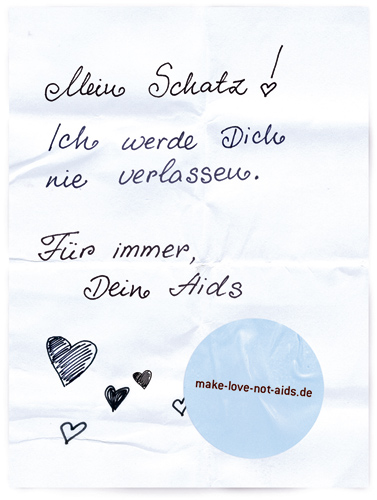 Mein Schatz!
Ich werde Dich
nie verlassen.
Für immer,
Dein Aids
make-love-not-aids.de